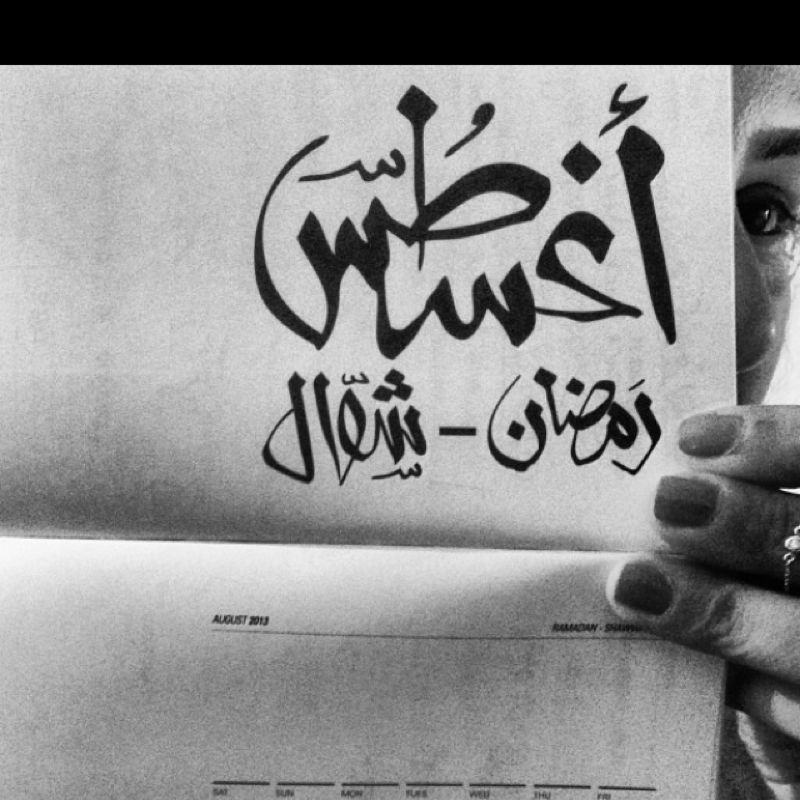 أغسطس
رمضان - شوّال
AUGUST 2013 RAMADAN - SHAWWAL
SAT SUN MON TUES WED THU FRI